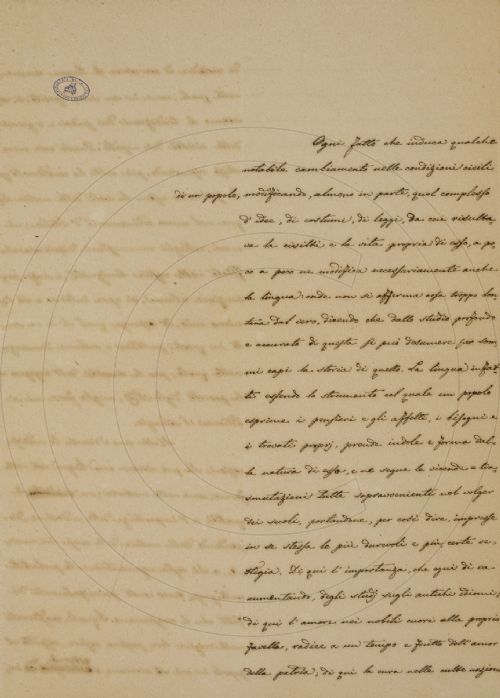 Ogni fatto che induca qualche
notabile cambiamento nelle condizioni civili
di un popolo, modificando, almeno in parte, quel complesso
d'idee, di costumi, di leggi, da cui risulta-
va la civiltà e la vita propria di esso, a po-
co a poco ne modifica necessariamente anche
la lingua: onde non si afferma cosa troppo lon-
tana dal vero, dicendo che dallo studio profondo
e accurato di questa si può desumere per som-
mi capi la storia di quello. La lingua infat-
ti essendo lo strumento col quale un popolo
esprime i pensieri e gli affetti, i bisogni e
i trovati proprj, prende indole e forma dal-
la natura di esso, e ne segue le vicende e tra-
smutazioni tutte sopravvenienti col volger
dei secoli, portandone, per così dire, impresse
in se stessa le più durevoli e più certe ve-
stigia. Di qui l'importanza, che ogni dì va
aumentando, degli studj sugli antichi idiomi;
di qui l'amore nei nobili cuori alla propria
favella, radice a un tempo e frutto dell'amor
della patria; di qui la cura nelle culte nazioni